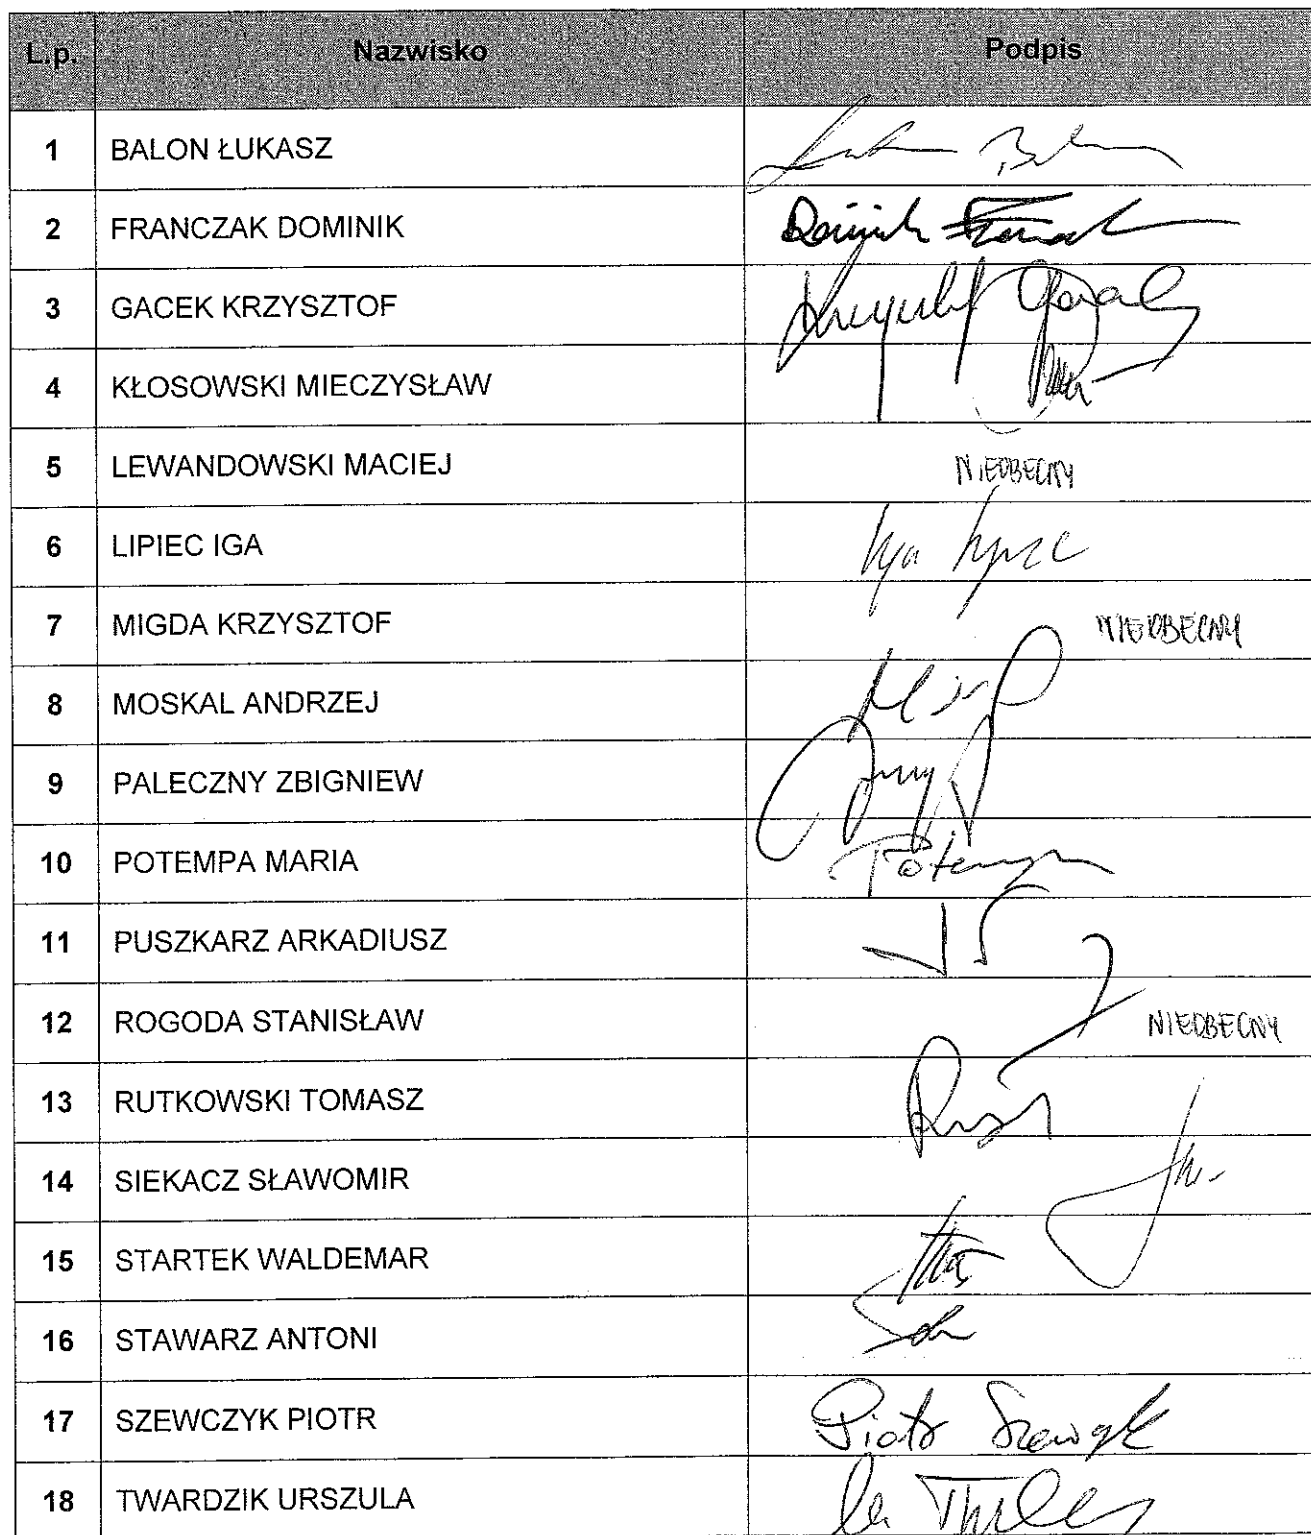 L.p. Nazwisko Podpis
1 BALON ŁUKASZ
2 FRANCZAK DOMINIK Dominik
3 GACEK KRZYSZTOF Krzysztof
4 KŁOSOWSKI MIECZYSŁAW
5 LEWANDOWSKI MACIEJ NIEOBECNY
6 LIPIEC IGA Iga Lipiec
7 MIGDA KRZYSZTOF NIEOBECNY
8 MOSKAL ANDRZEJ
9 PALECZNY ZBIGNIEW
10 POTEMPA MARIA Potempa
11 PUSZKARZ ARKADIUSZ
12 ROGODA STANISŁAW NIEOBECNY
13 RUTKOWSKI TOMASZ
14 SIEKACZ SŁAWOMIR
15 STARTEK WALDEMAR
16 STAWARZ ANTONI
17 SZEWCZYK PIOTR Piotr Szewczyk
18 TWARDZIK URSZULA